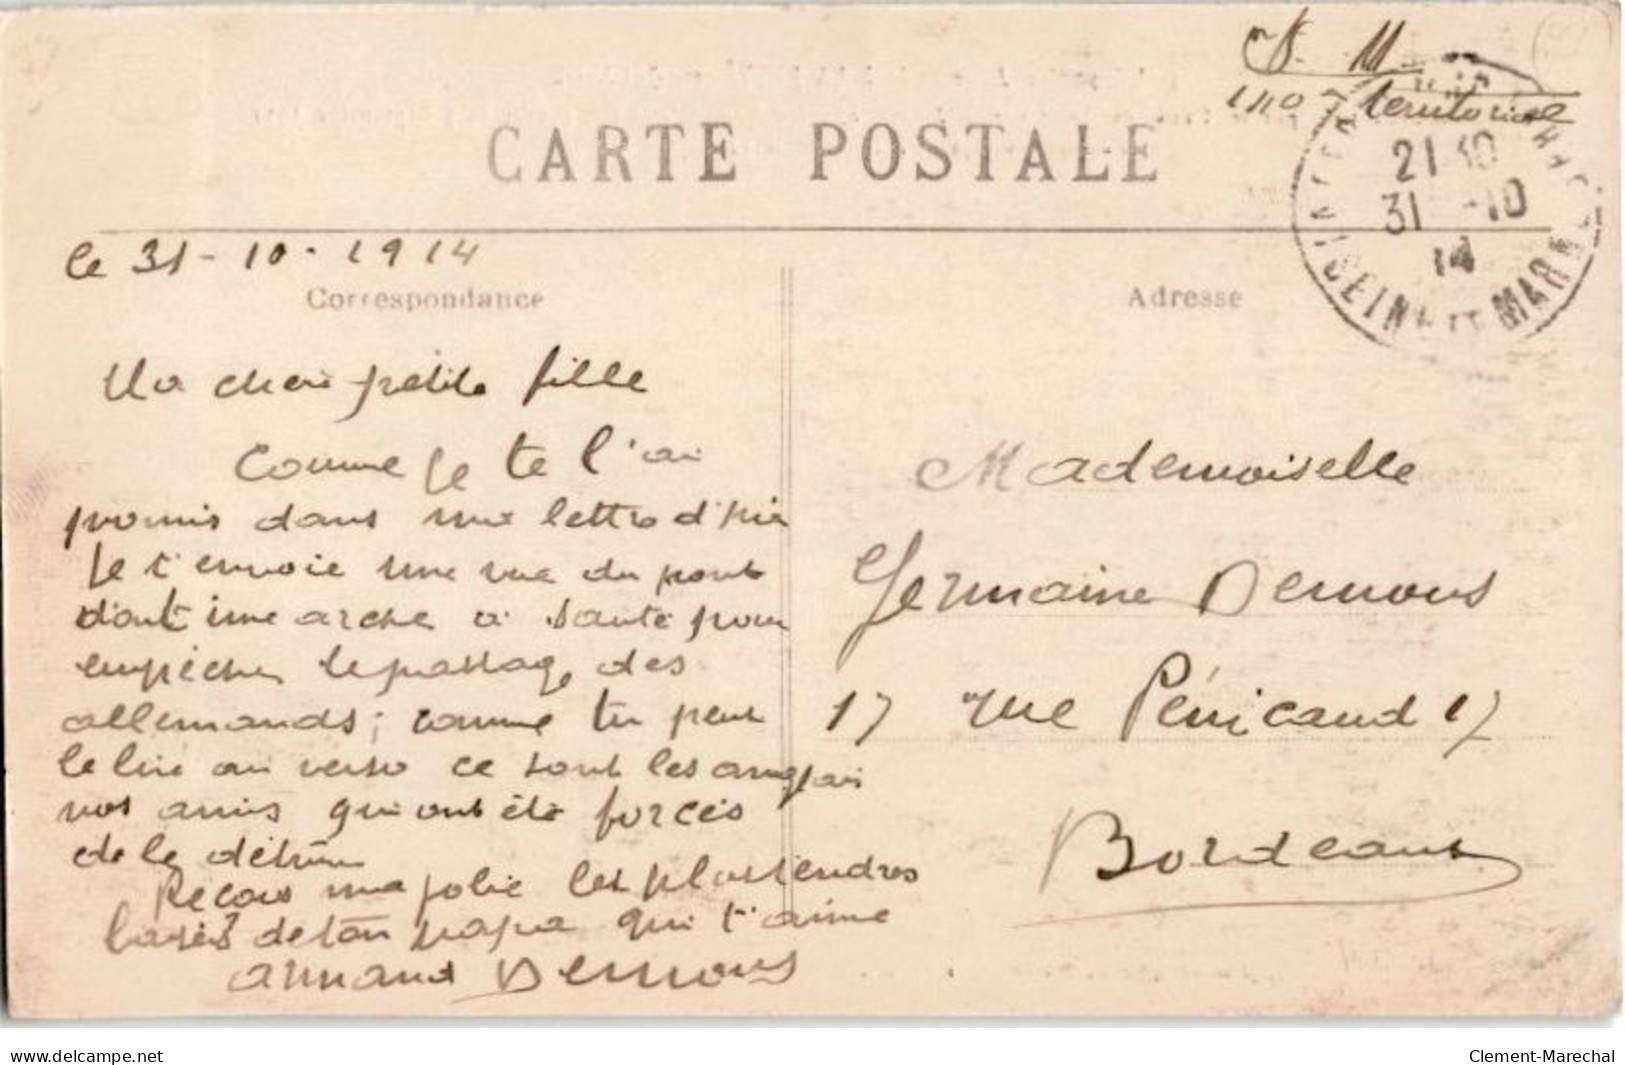 S. M.
110e territorial
CARTE POSTALE
21 30
31 -10
14
SEINE ET MARNE
le 31-10-1914
Correspondance
Adresse
Ma cher petite fille
Comme je te l'ai
promis dans une lettre d'hier
je t'envoie une vue du pont
dont une arche a sauté pour
empêcher le passage des
allemands; comme tu peut
le lire au verso ce sont les anglais
nos amis qui ont été forcés
de le détruire
Reçois ma jolie les plus tendres
baisers de ton papa qui t'aime
Armand Demons
Mademoiselle
Germaine Demons
17 rue Pénicaud 17
Bordeaux
www.delcampe.net
Clement-Marechal